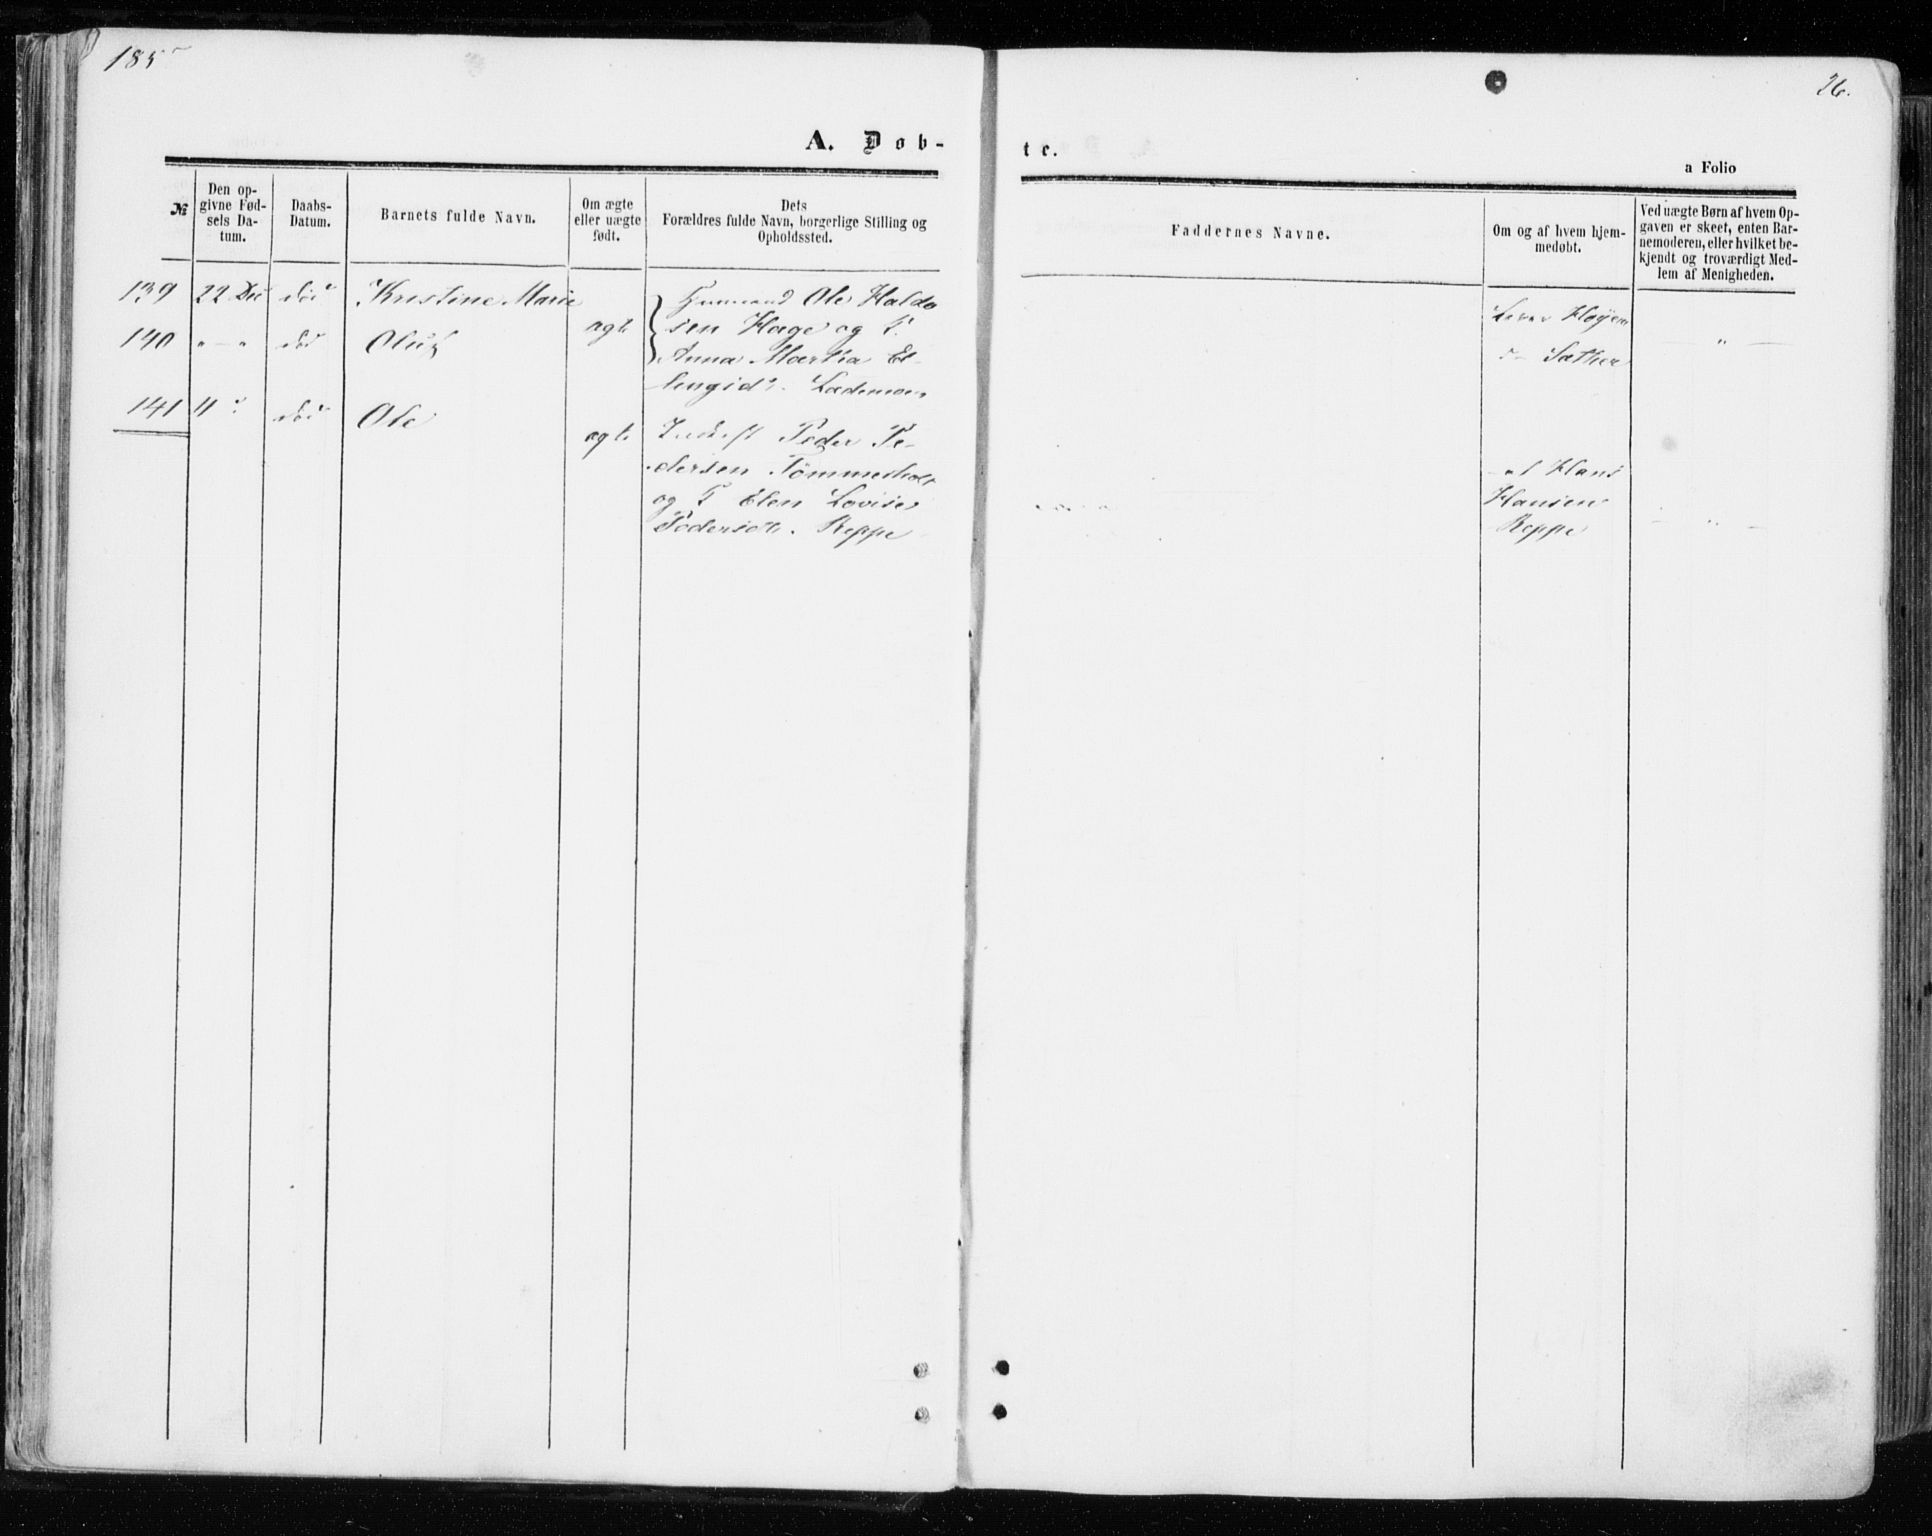 1855
26.
A. Døb-
te.
a Folio
№
Den op-
givne Fød-
sels Da-
tum.
Daabs-
Datum.
Barnets fulde Navn.
Om ægte
eller uægte
født.
Dets
Forældres fulde Navn, borgerlige Stilling og
Opholdssted.
Faddernes Navne.
Om og af hvem hjem-
medøbt.
Ved uægte Børn af hvem Op-
gaven er skeet, enten Bar-
nemoderen, eller hvilket be-
kjendt og troværdigt Med-
lem af Menigheden.
139 22 Dec død Kristine Marie
ægte
Ole Haldo
sen Hage og
Anna Martha El-
lingsd.
140 " - " død
141 11 død Ole
ægte
Peder Pe-
dersen
og Elen Lovise
Pedersdtr. Reppe
Sæther
af Hans
Hansen
Reppe
- " -
- " -